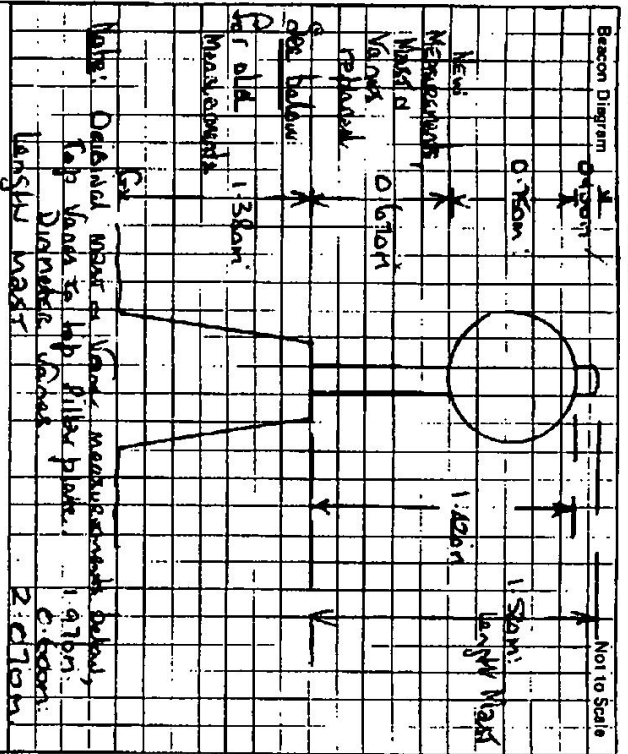 Beacon Diagram
Not to Scale
0.750m
0.670m
1.380m
1.420m
1.520m
Length Mast
New
Measurements
Mast &
Vanes
replaced
See below
for old
Measurements
Note: Original mast & Vanes measurements below,
Top Vanes to top pillar plate. 1.970m.
Diameter Vanes. 0.600m.
Length Mast 2.070m